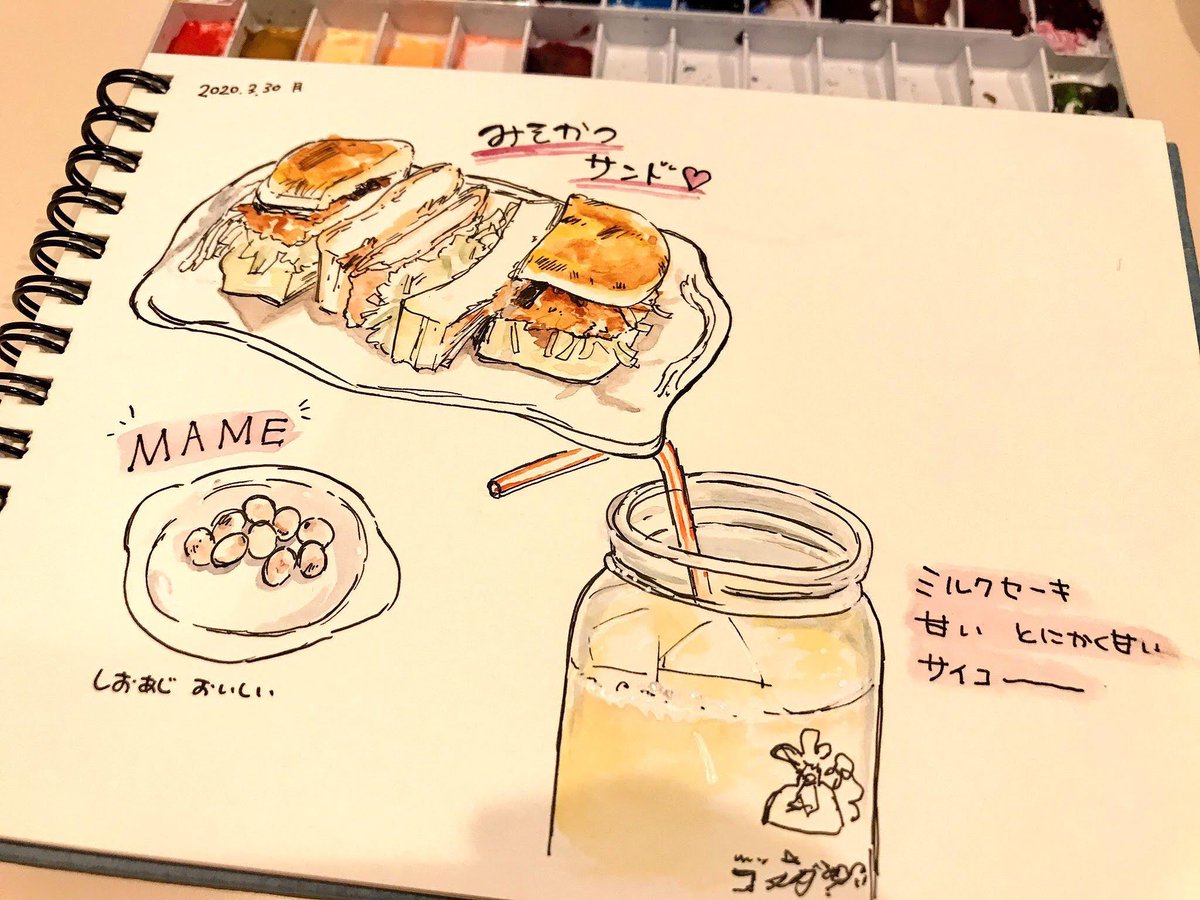 2020.3.30 月
みそかつ
サンド♡
MAME
しおあじ おいしい
ミルクセーキ
甘い とにかく甘い
サイコー